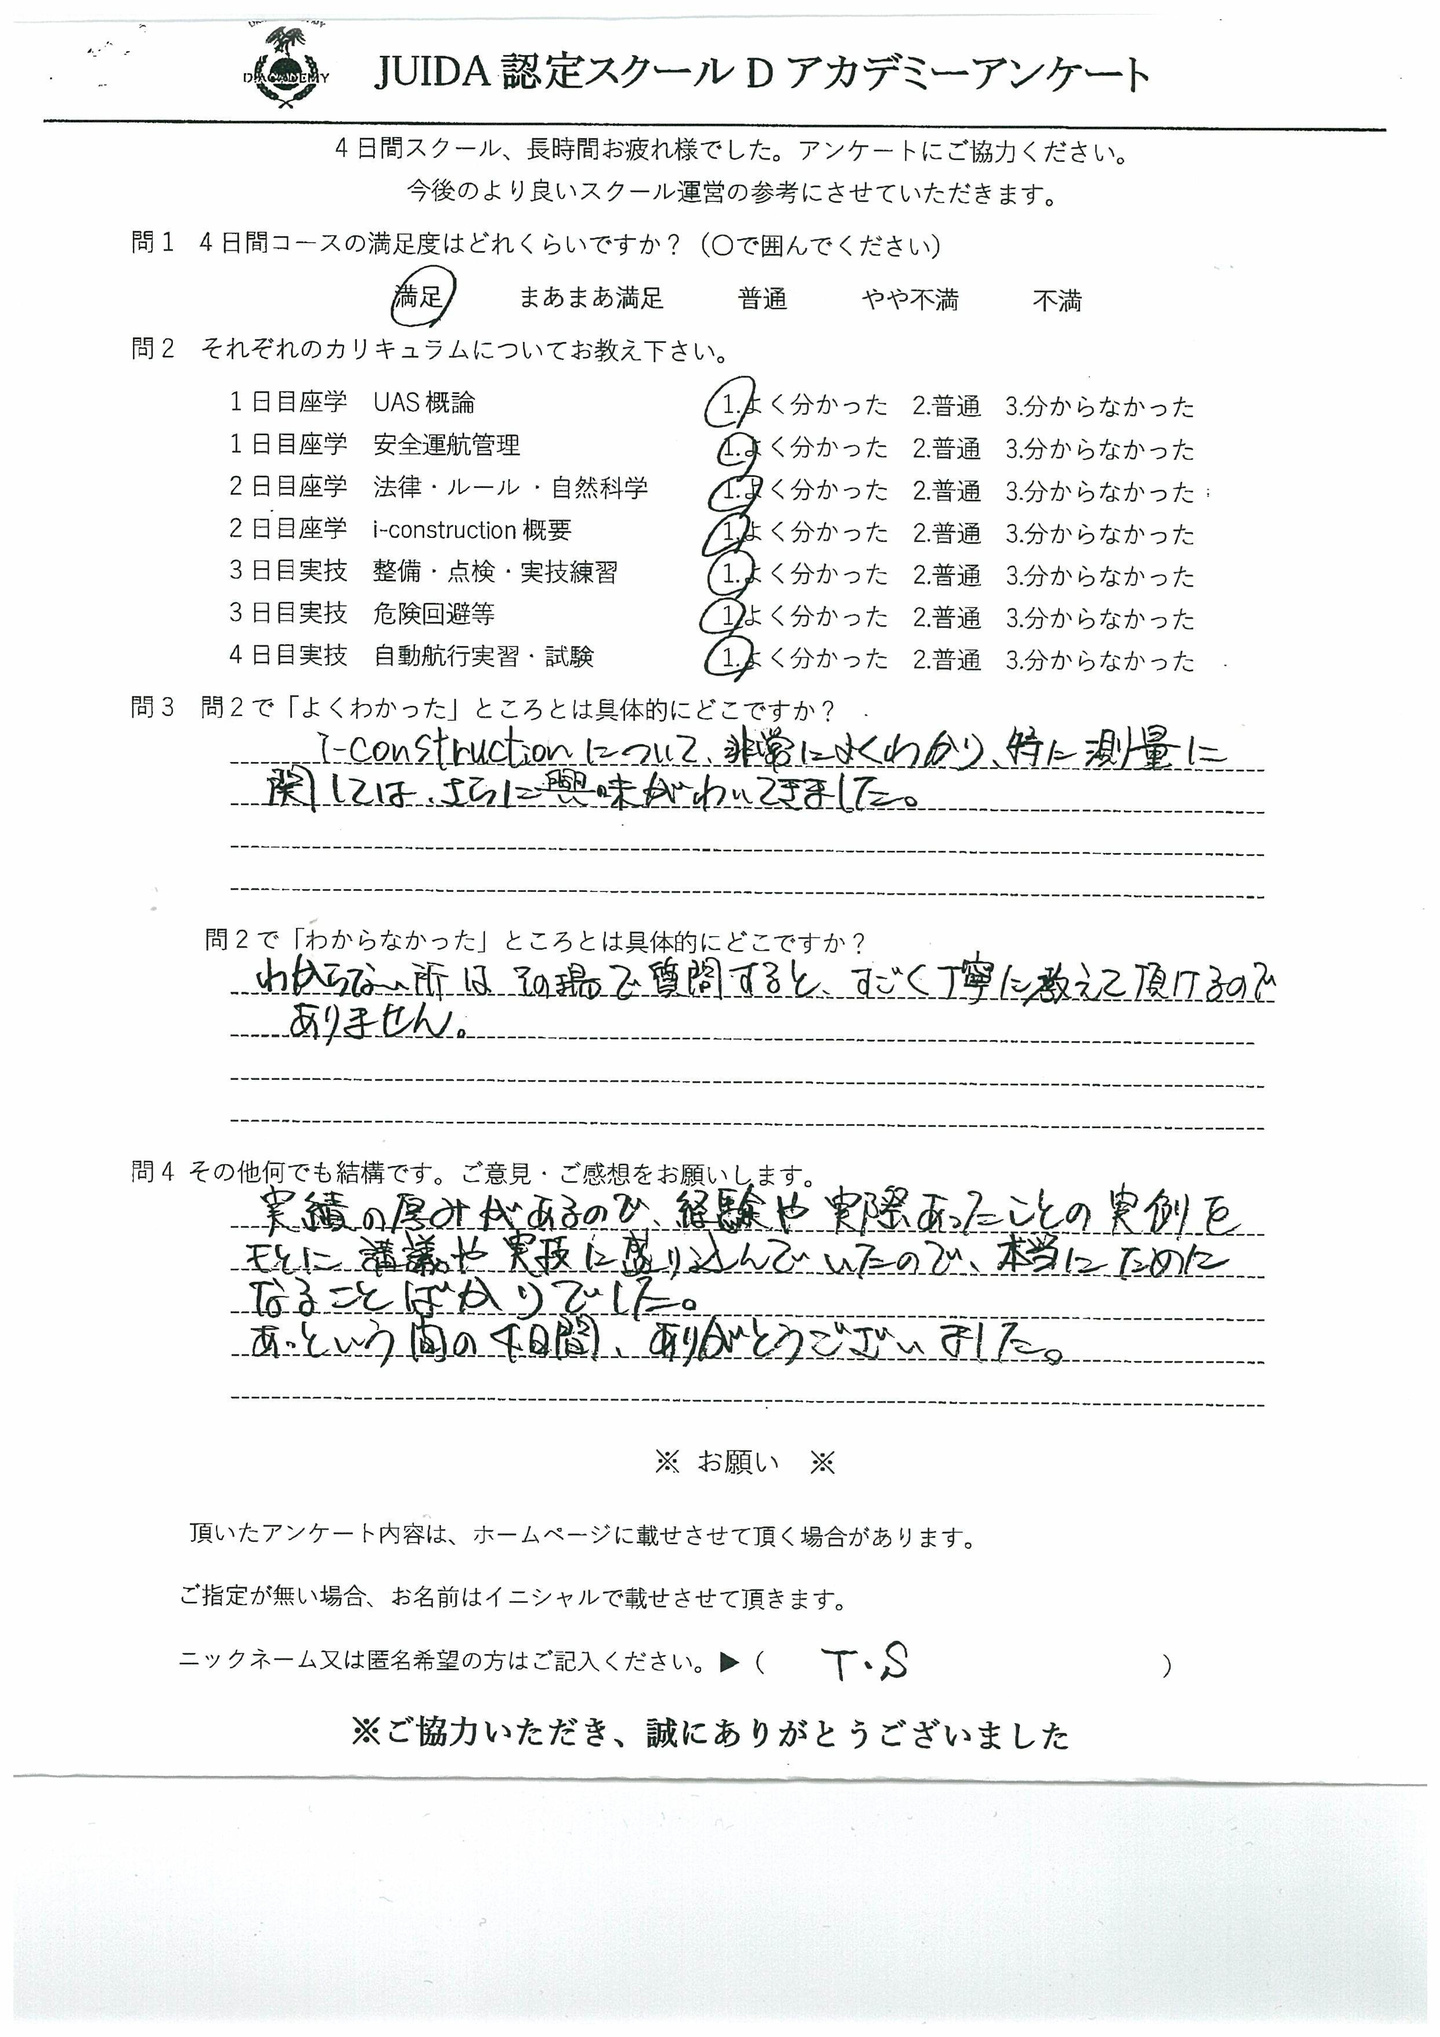 D.ACADEMY
JUIDA 認定スクール D アカデミーアンケート
4日間スクール、長時間お疲れ様でした。アンケートにご協力ください。
今後のより良いスクール運営の参考にさせていただきます。
問1 4日間コースの満足度はどれくらいですか？（〇で囲んでください）
満足 まあまあ満足 普通 やや不満 不満
問2 それぞれのカリキュラムについてお教え下さい。
1日目座学 UAS概論 1.よく分かった 2.普通 3.分からなかった
1日目座学 安全運航管理 1.よく分かった 2.普通 3.分からなかった
2日目座学 法律・ルール・自然科学 1.よく分かった 2.普通 3.分からなかった
2日目座学 i-construction概要 1.よく分かった 2.普通 3.分からなかった
3日目実技 整備・点検・実技練習 1.よく分かった 2.普通 3.分からなかった
3日目実技 危険回避等 1.よく分かった 2.普通 3.分からなかった
4日目実技 自動航行実習・試験 1.よく分かった 2.普通 3.分からなかった
問3 問2で「よくわかった」ところとは具体的にどこですか？
i-constructionについて、非常によくわかり、特に測量に
関しては、さらに興味がわいてきました。
問2で「わからなかった」ところとは具体的にどこですか？
わからない所はその場で質問すると、すごく丁寧に教えて頂けるので
ありません。
問4 その他何でも結構です。ご意見・ご感想をお願いします。
実績の厚みがあるので、経験や実際あったことの実例を
もとに講義や実技に盛り込んでいたので、本当にために
なることばかりでした。
あっという間の4日間、ありがとうございました。
※ お願い ※
頂いたアンケート内容は、ホームページに載せさせて頂く場合があります。
ご指定が無い場合、お名前はイニシャルで載せさせて頂きます。
ニックネーム又は匿名希望の方はご記入ください。▶（ T.S ）
※ご協力いただき、誠にありがとうございました